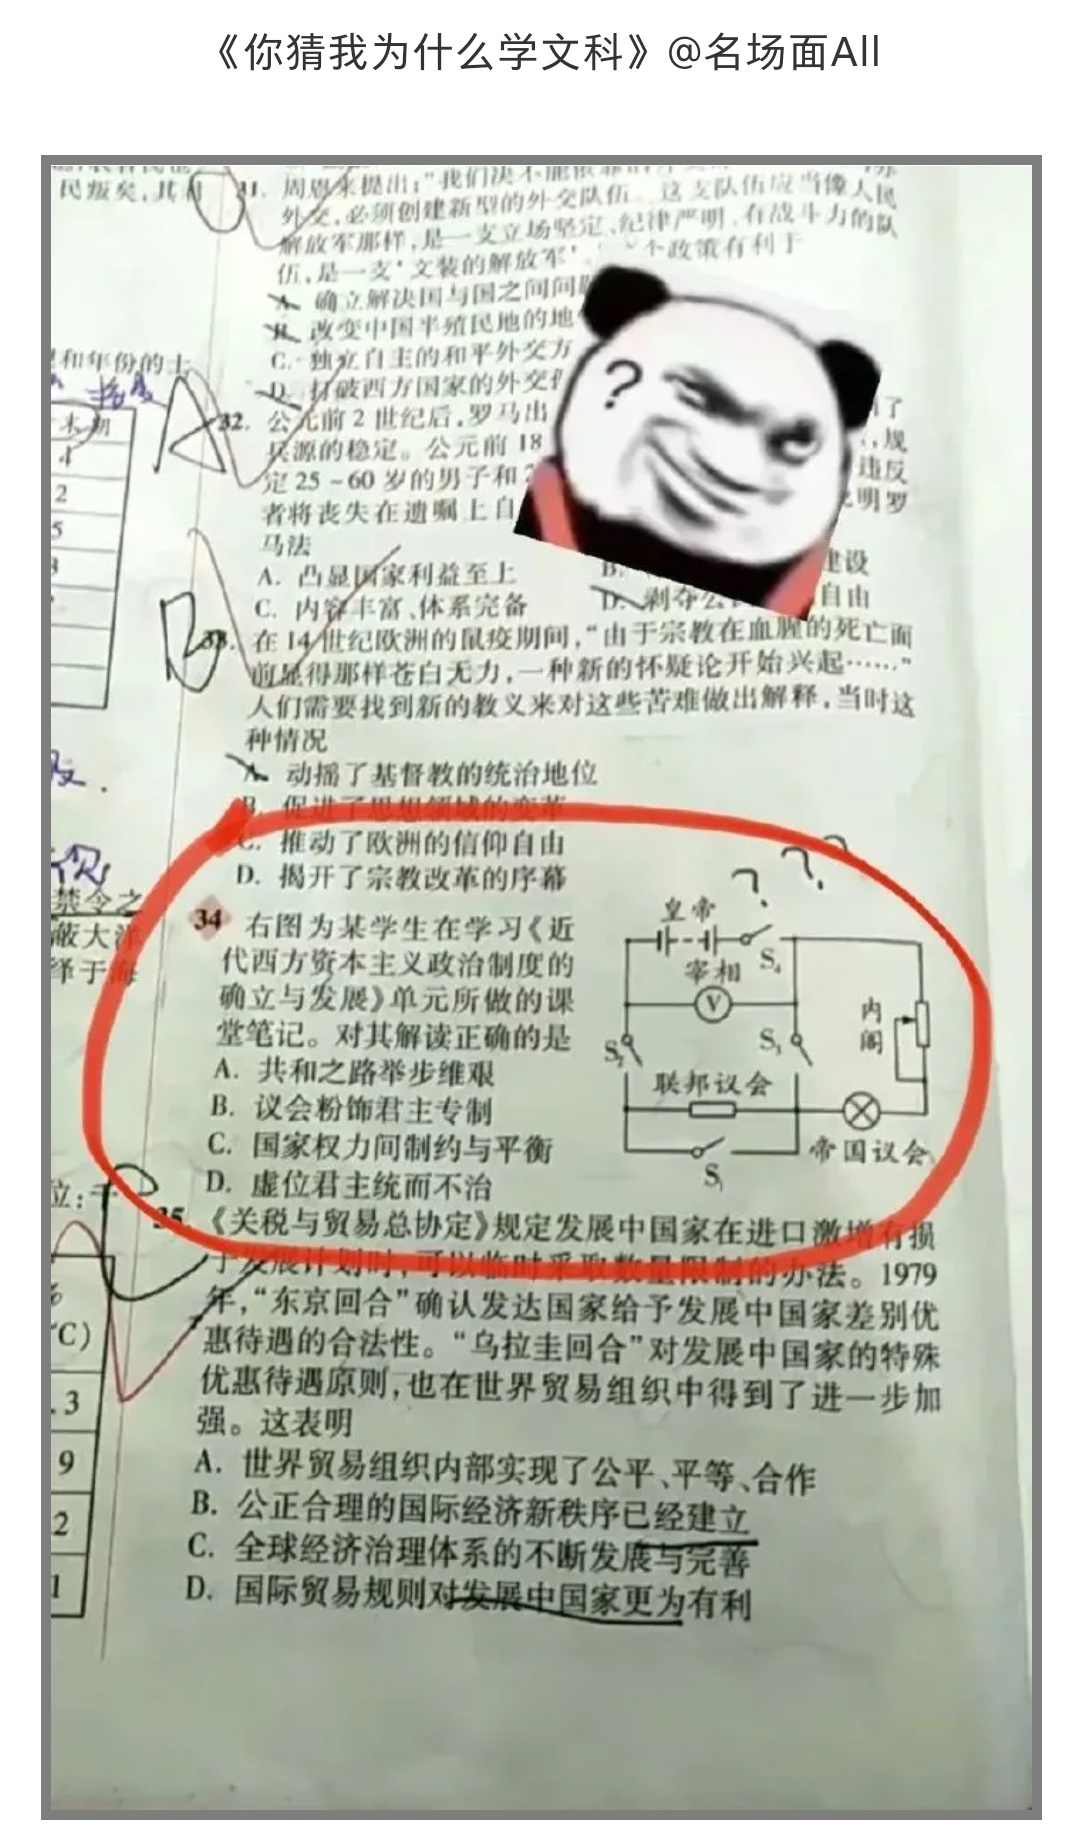 《你猜我为什么学文科》@名场面All
民叛矣,其
31. 周恩来提出:"我们决不能依靠
外交,必须创建新型的外交队伍。这支队伍应当像人民
解放军那样,是一支立场坚定、纪律严明、有战斗力的队
伍,是一支'文装的解放军' 个政策有利于
A. 确立解决国与国之间问
B. 改变中国半殖民地的地
C. 独立自主的和平外交方
D. 打破西方国家的外交
和年份的士
末期
4
2
5
32. 公元前2世纪后,罗马出 了
兵源的稳定。公元前18 ,规
定25-60岁的男子和 违反
者将丧失在遗嘱上自 明罗
马法
A. 凸显国家利益至上
B. 建设
C. 内容丰富、体系完备
D. 剥夺公 自由
33. 在14世纪欧洲的鼠疫期间,"由于宗教在血腥的死亡面
前显得那样苍白无力,一种新的怀疑论开始兴起……"
人们需要找到新的教义来对这些苦难做出解释,当时这
种情况
A. 动摇了基督教的统治地位
B. 促进了思想领域的变革
C. 推动了欧洲的信仰自由
D. 揭开了宗教改革的序幕
禁令之
蔽大洋
绎于海
34 右图为某学生在学习《近
代西方资本主义政治制度的
确立与发展》单元所做的课
堂笔记。对其解读正确的是
A. 共和之路举步维艰
B. 议会粉饰君主专制
C. 国家权力间制约与平衡
D. 虚位君主统而不治
? ? ?
皇帝
S4
宰相
V
内阁
S2
S3
联邦议会
帝国议会
S1
位:千
35. 《关税与贸易总协定》规定发展中国家在进口激增有损
于发展计划时,可以临时采取数量限制的办法。1979
年,"东京回合"确认发达国家给予发展中国家差别优
惠待遇的合法性。"乌拉圭回合"对发展中国家的特殊
优惠待遇原则,也在世界贸易组织中得到了进一步加
强。这表明
A. 世界贸易组织内部实现了公平、平等、合作
B. 公正合理的国际经济新秩序已经建立
C. 全球经济治理体系的不断发展与完善
D. 国际贸易规则对发展中国家更为有利
℃)
.3
9
2
1
A
B
?